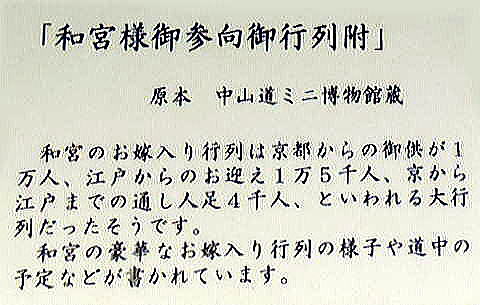 「和宮様御参向御行列附」
原本　中山道ミニ博物館蔵
和宮のお嫁入り行列は京都からの御供が１
万人、江戸からのお迎え１万５千人、京から
江戸までの通し人足４千人、といわれる大行
列だったそうです。
和宮の豪華なお嫁入り行列の様子や道中の
予定などが書かれています。